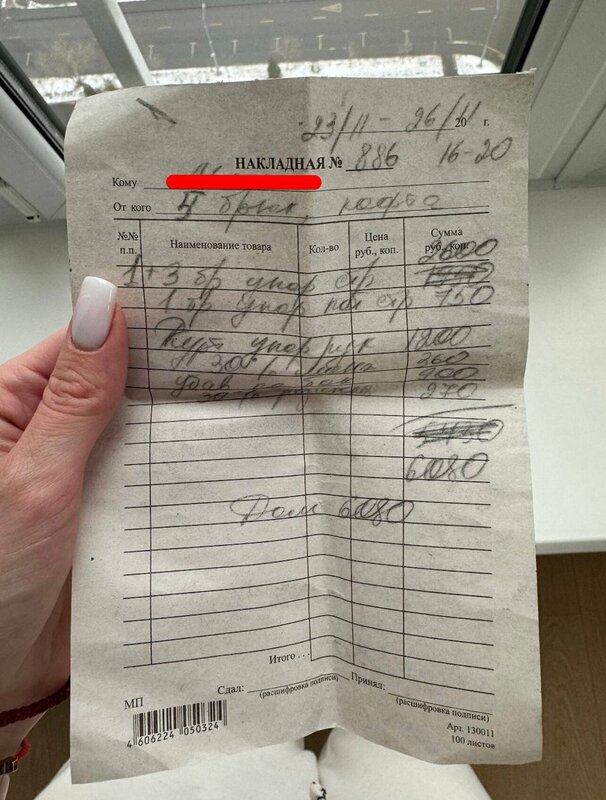 23/11 - 26/11 20 г.
НАКЛАДНАЯ № 886 16-20
Кому
От кого 4 брюк, кофта
№№ п.п. Наименование товара Кол-во Цена руб., коп. Сумма руб., коп.
1+3 бр укор стр 2600
1 бр укор стр 750
Курт укор рук 1200
360
200
270
6080
Долг 6080
Итого . . .
МП Сдал: (расшифровка подписи) Принял: (расшифровка подписи)
4 606224 050324
Арт. 130011
100 листов